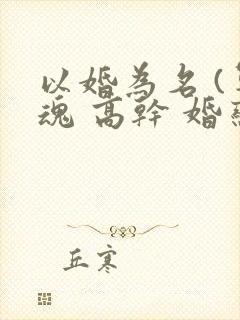 以婚為名(
魂 高幹 婚
丘寒